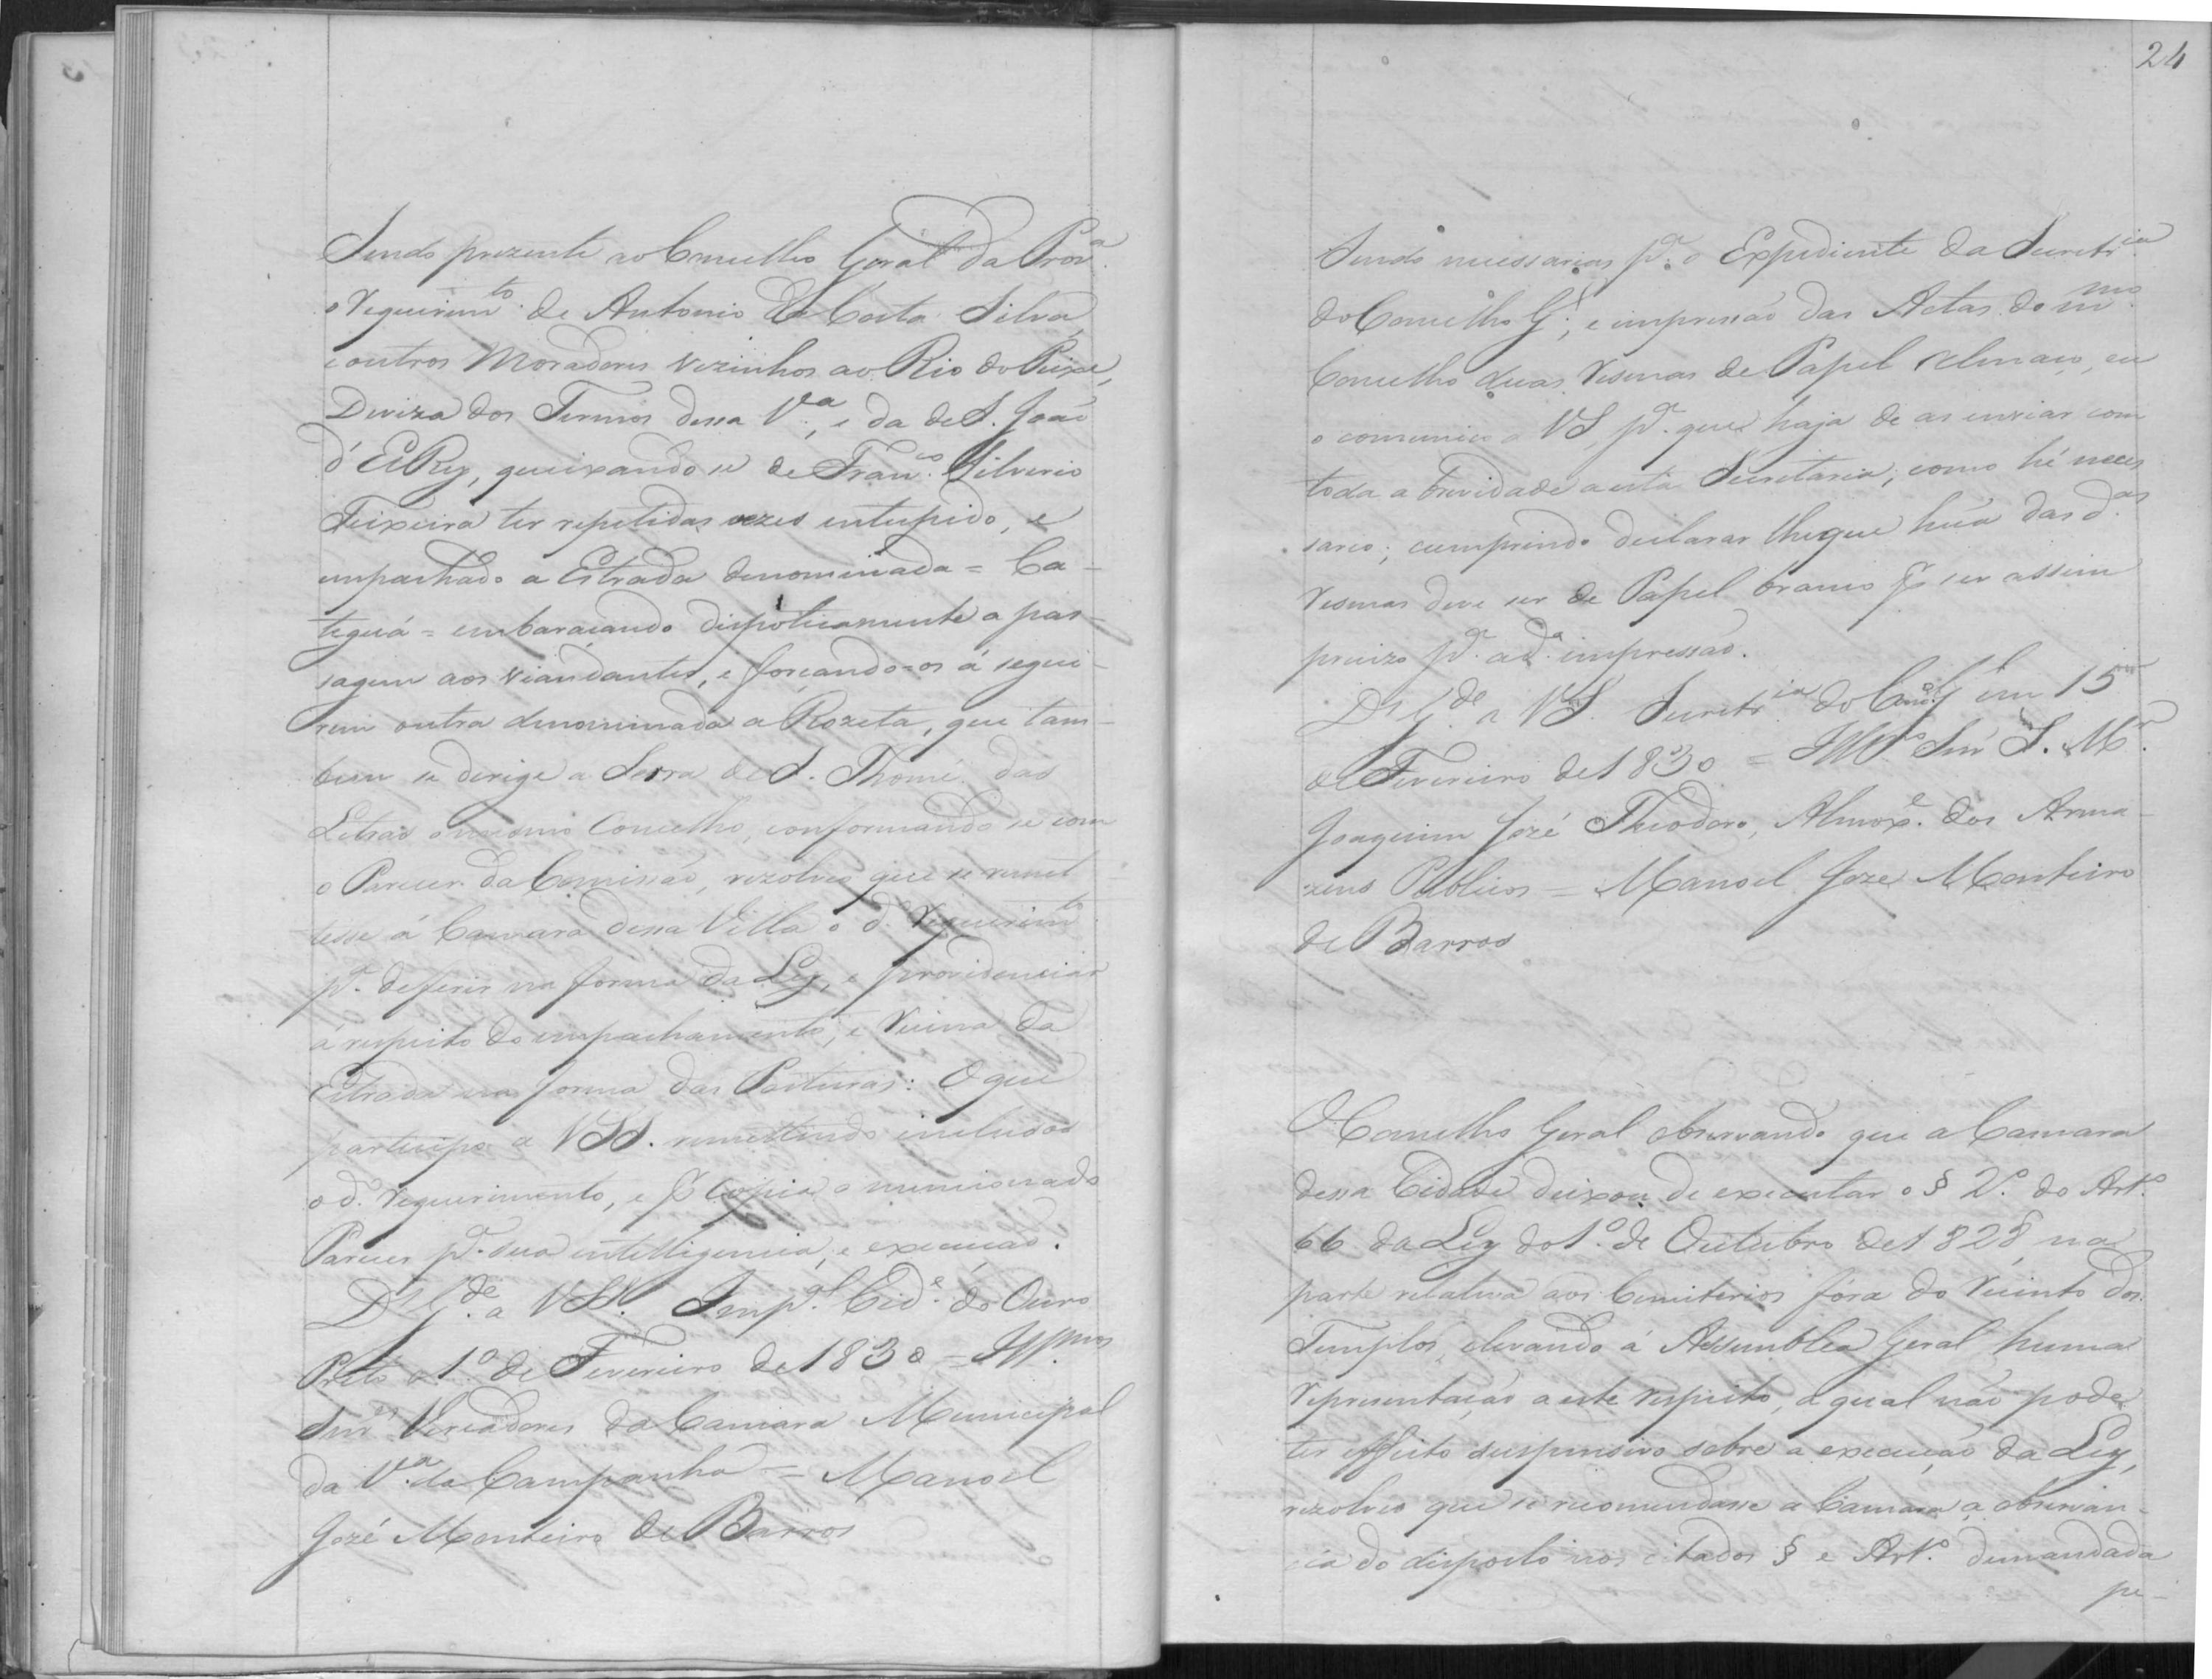 Sendo prezente ao Concelho Geral da Prov.ª
o requerim.to de Antonio da Costa Silva
e outros Moradores vezinhos ao Rio do Peixe,
Diviza dos Termos dessa V.ª, e da de S. João
d'El Rey, queixando se de Fran.co Silverio
Teixeira ter repetidas vezes entupido, e
empachado a Estrada denominada = Ca-
teguá = embaraçando dispoticamente a pas-
sagem aos viandantes, e forçando-os á segui-
rem outra denominada a Rozeta, que tam-
bem se dirige a Serra de S. Thomé das
Letras o mesmo Concelho, conformando se com
o Parecer da Comissão, rezolveo que se remet-
tesse á Camara dessa Villa o d.º requerim.to
p.ª deferir na forma da Ley, e providenciar
á respeito do empachamento, e ruina da
Estrada na forma das Posturas: O que
participo a VSS. remettindo incluso
o d.º requerimento, e p copia o mencionado
Parecer p.ª sua intelligencia, e execução.
D.s G.de a VSS. Imp.al Cid.e do Ouro
Preto o 1.º de Fevereiro de 1830 = Ill.mos
Snr.es Vereadores da Camara Municipal
da V.ª da Campanha = Manoel
Jozé Monteiro de Barros
24
Sendo necessarias p.ª o Expediente da Secretr.ia
do Concelho G.l, e impressão das Actas do m.mo
Concelho duas resmas de Papel Almaço, eu
o comunico a VS. p.ª que haja de as enviar com
toda a brevidade a esta Secretaria, como hé neces
sario; cumprindo declarar lhe que húa das d.as
resmas deve ser de Papel branco p ser assim
precizo p.ª a d.ª impressão.
D.s G.de a VS. Secretr.ia do Con.º G.l em 15
de Fevereiro de 1830 = Ill.º Snr S. M.r
Joaquim Jozé Theodoro, Almox.e dos Arma-
zens Publicos = Manoel Joze Monteiro
de Barros
O Concelho Geral observando que a Camara
dessa Cidade deixou de executar o § 2.º do Art.º
66 da Ley do 1.º de Outubro de 1828, na
parte relativa aos Cemiterios fóra do recinto dos
Templos, elevando á Assemblea Geral huma
representação a este respeito, a qual não pode
ter effeito suspensivo sobre a execução da Ley,
rezolveo que se recomendasse a Camara a observan-
cia do disposto nos citados § e Art.º demandada
pe-